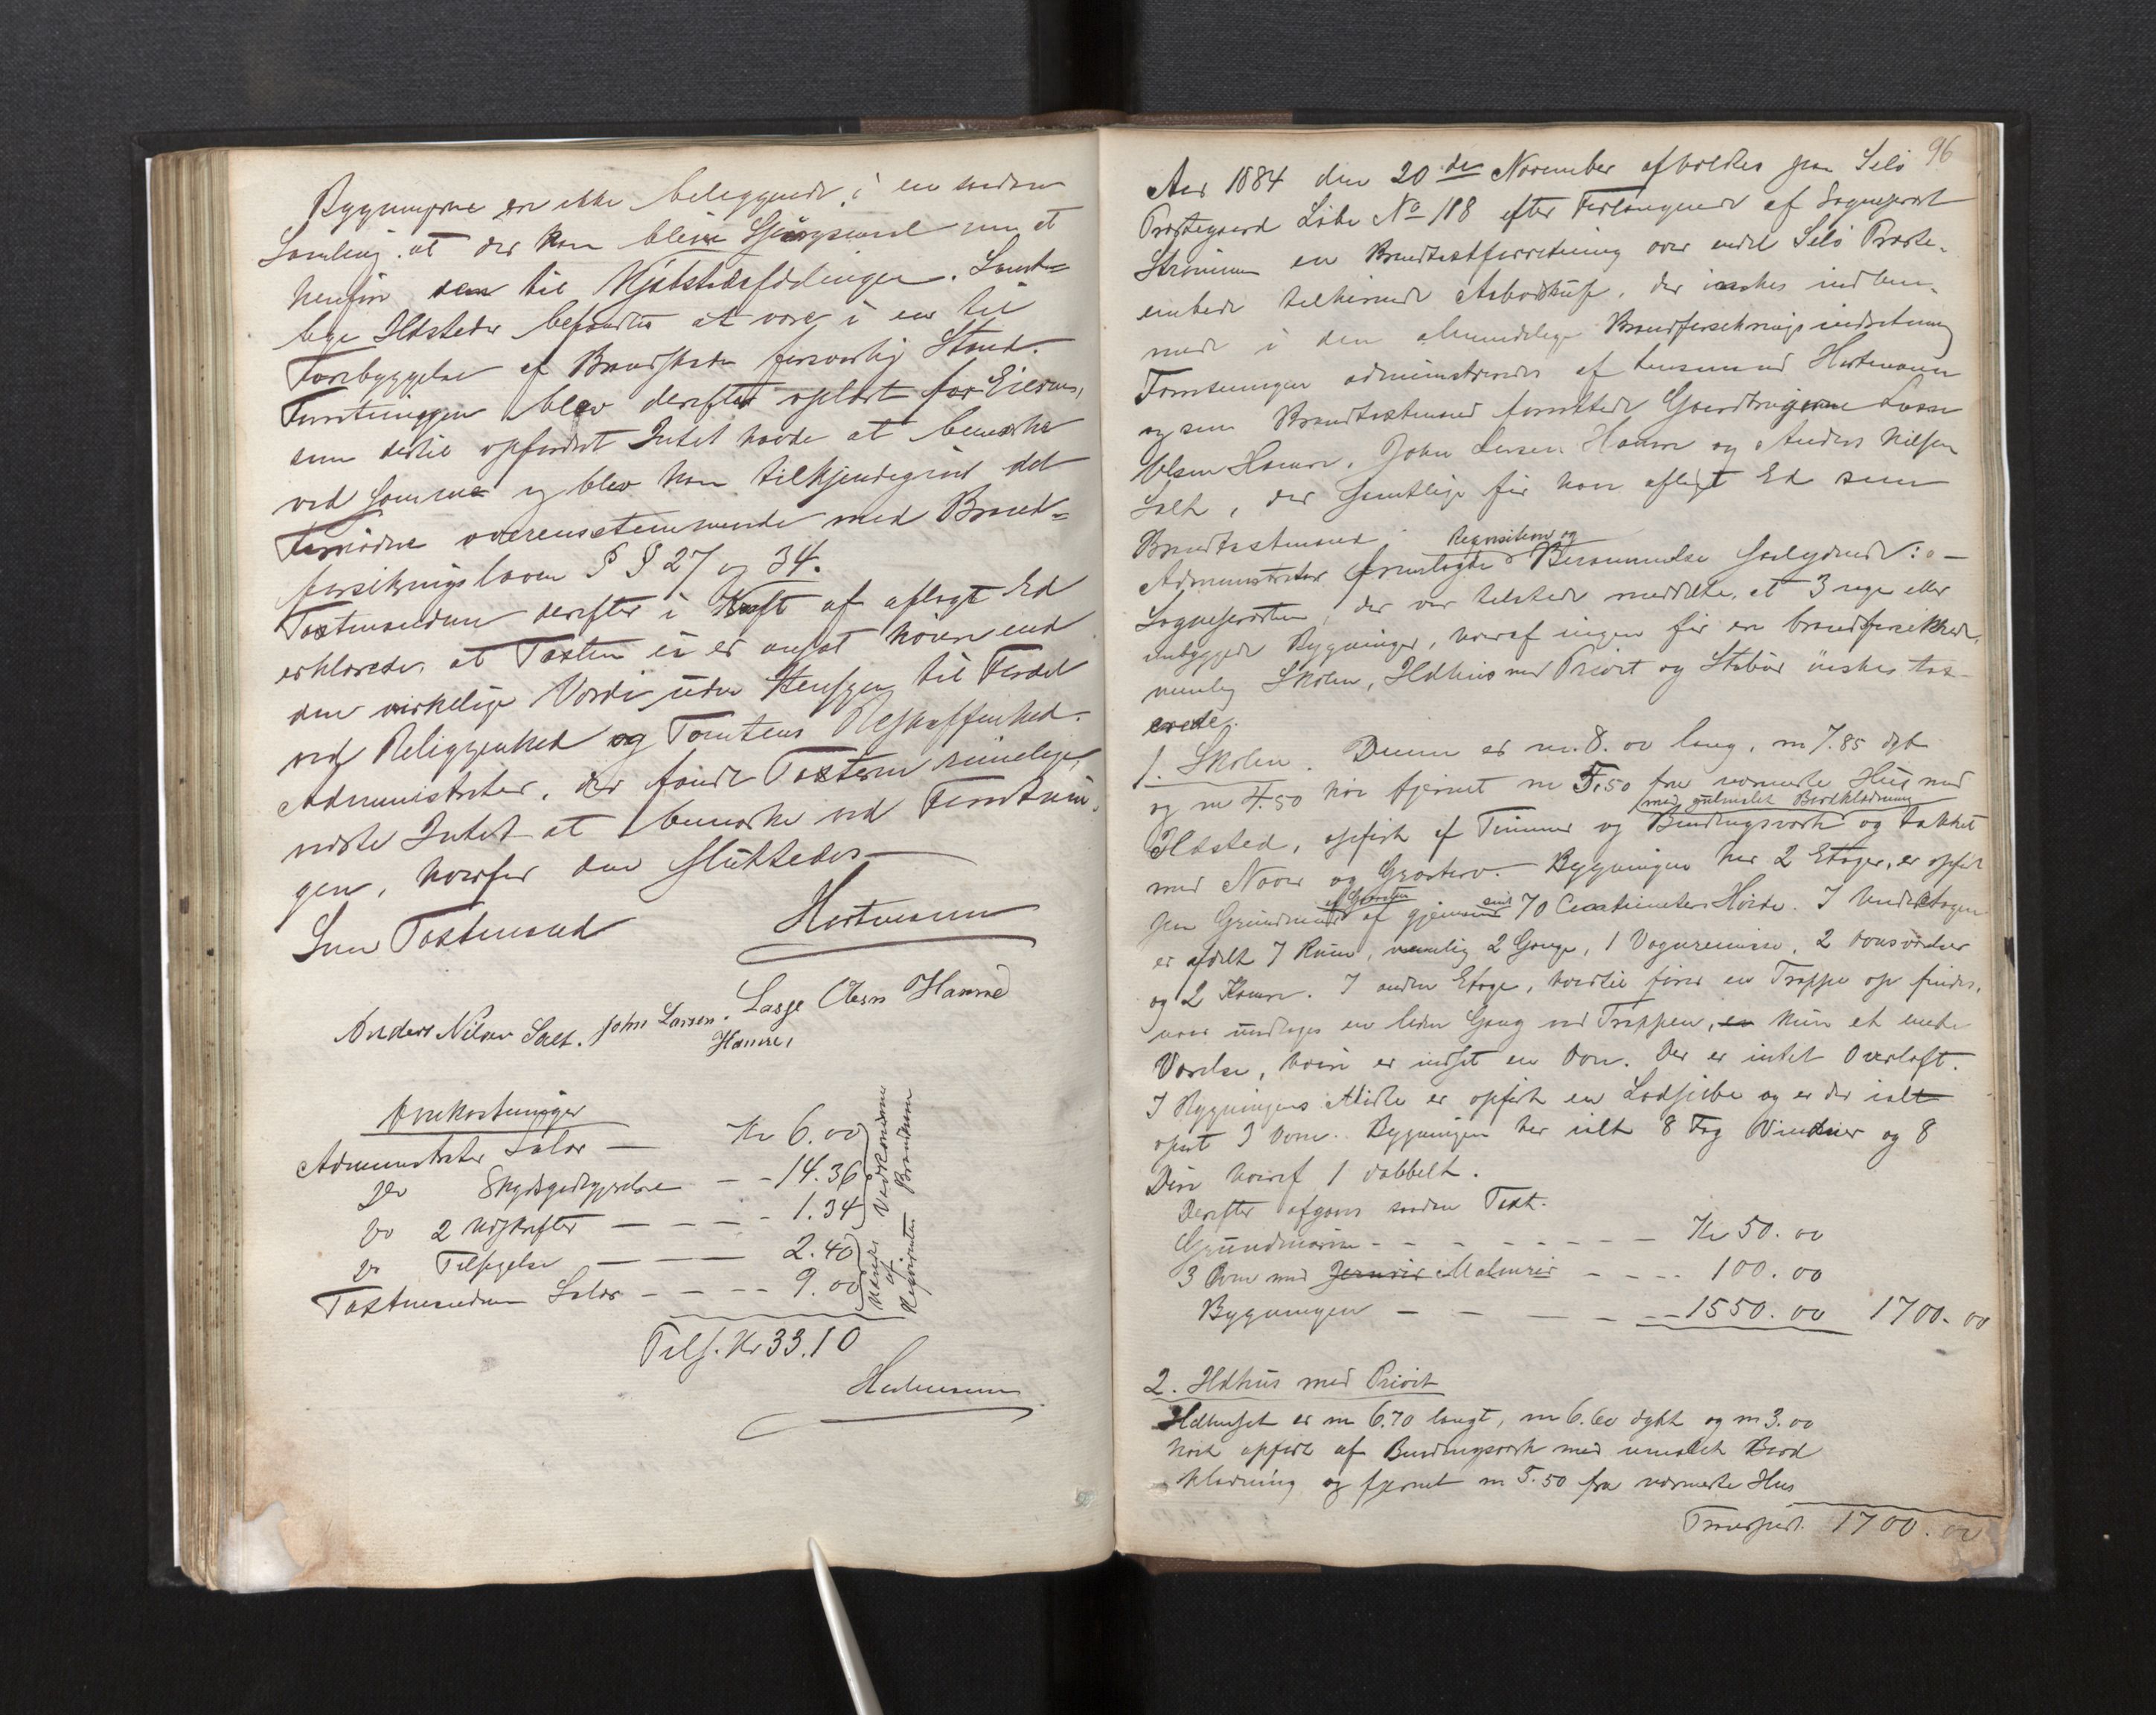 Bygningerne ere ikke beliggende i en saadan
Samling, at der kan blive Spörgsmaal om at
henføre dem til Kjöbstadsafdelingen. Samt=
lige Ildsteder befandtes at være i en til
Forebyggelse af Brandskade forsvarlig Stand.
Forretningen blev derefter oplæst for Eieren,
som dertil opfordret Intet havde at bemærke
ved samme og blev han tilkjendegivet det
Fornødne overensstemmende med Brand=
forsikringsloven § § 27 og 34.
Taxtmændene derefter i Kraft af aflagt Ed
erklærede, at Taxten ei er ansat höiere end
den virkelige Værdi uden Hensyn til Fordel
ved Beliggenhed og Tomtens Beskaffenhed.
Administrator, der fandt Taxterne rimelige,
vidste Intet at bemærke ved Forretnin-
gen, hvorfor den sluttedes
Hartmann
Som Taxtmænd
Anders Nilsen Salt. John Larsen Hamre, Lasse Olsen Hamre
Omkostninger
Administrator Salær — Kr 6.00
Do Skydsgodtgjørelse - - 14.36
Do 2 Udskrifter — — — - 1.34
Do Tilsigelse — — — 2.40
Taxtmændene Salær - - - - 9.00
Tils. Kr 33.10
Hartmann
96
Aar 1884 den 20de November afholdtes paa Selö
Præstegaard Löbe No 118 efter Forlangende af Sognepræst
Strömme en Brandtaxtforretning over endel Selö Præste-
embede tilhörende Aabodshuse, der önskes indlem-
mede i den almindelige Brandforsikringsindretning
Forretningen administreredes af Lensmand Hartmann
og som Brandtaxtmænd forrettede Gaardbrugerne Lasse
Olsen Hamre, John Larsen Hamre og Anders Nilsen
Salt, der samtlige för have aflagt Ed som
Brandtaxtmænd.
Administrator fremlagde Requisition og Berammelse saalydende: -
Sognepræsten, der var tilstede meddelte, at 3 nye eller
ombyggede Bygninger, hvoraf ingen för er brandforsikrede,
nemlig Skolen, Ildhus med Privet og Stabur önskes tax-
erede.
1. Skolen. Denne er m. 8.00 lang, m 7.85 dyb
og m 4.50 höi fjernet m 5.50 fra nærmeste Hus med
Ildsted, opfört af Tömmer og Bindingsværk med gulmalet Bordklædning og tækket
med Næver og Græstorv. Bygningen har 2 Etager, er opfört
paa Grundmur af Graasten af gjennemsnit 70 Centimeters Höide. I Underetagen
er afdelt 7 Rum, nemlig 2 Gange, 1 Vognremisse, 2 Ovnsværelser
og 2 Kamre. I anden Etage, hvortil förer en Trappe op findes,
naar undtages en liden Gang ved Trappen, kun et eneste
Værelse, hvori er indsat en Ovn. Der er intet Overloft.
I Bygningens Midte er opfört en Ladpibe og er der ialt
opsat 3 Ovne. Bygningen har ialt 8 Fag Vinduer og 8
Döre hvoraf 1 dobbelt.
Derefter afgaves saadan Taxt:
Grundmuren - - - - - - — — Kr 50.00
3 Ovne med Jernrör Malmrör - - - - 100.00
Bygningen — — — - - 1550.00 1700.00
2. Ildhus med Privet
Ildhuset er m 6.70 langt, m 6.60 dybt og m 3.00
höit opfört af Bindingsværk med umalet Bord
klædning og fjernet m 5.50 fra nærmeste Hus
Transport. 1700.00